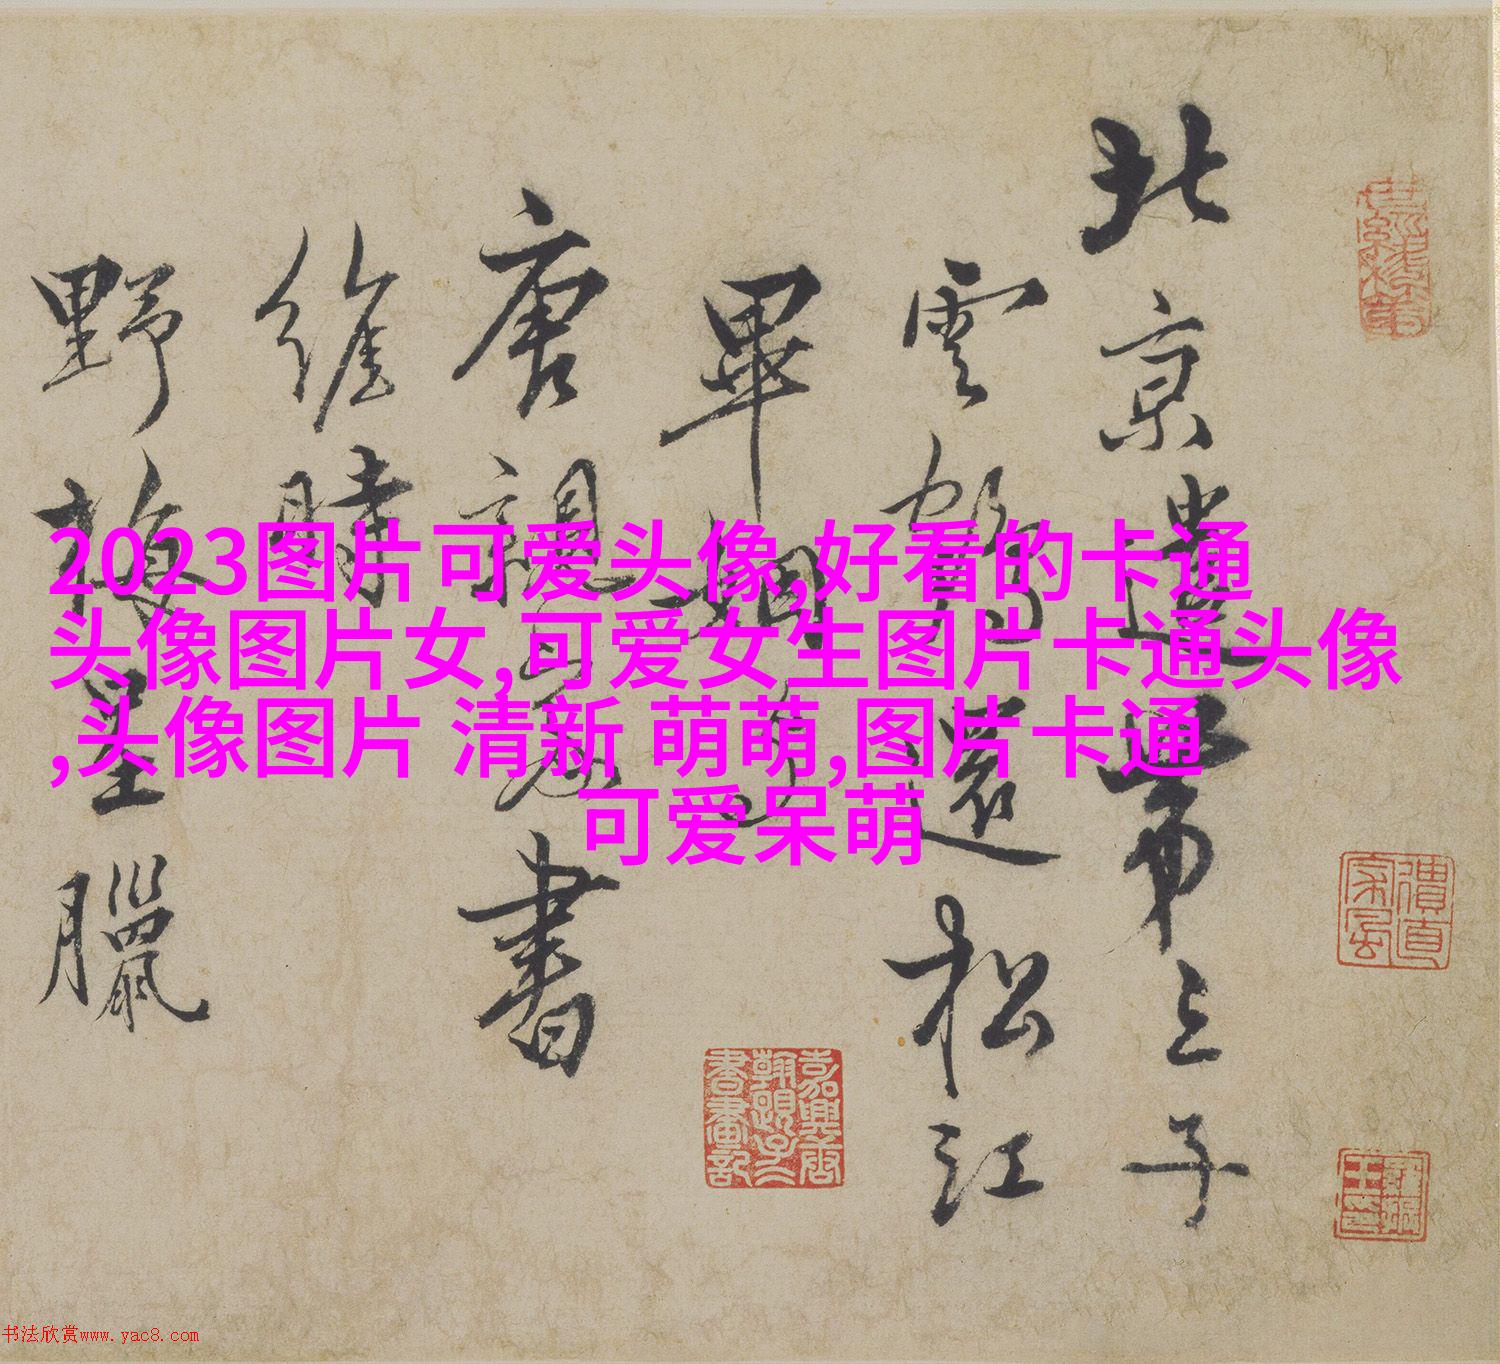 2023图片可爱头像,好看的卡通
头像图片女,可爱女生图片卡通头像
,头像图片 清新 萌萌,图片卡通
可爱呆萌
北京遣第三子
雲鶴還松江
畢姻
唐親家書
維時
野梅呈臘
书法欣赏www.yac8.com